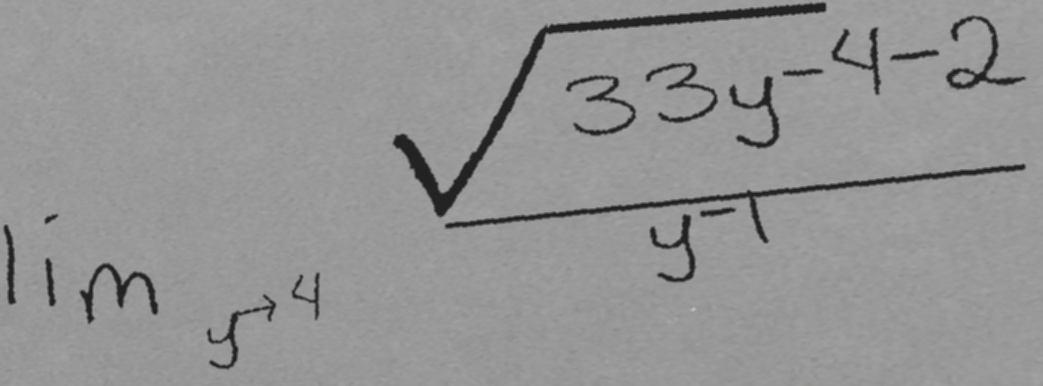 lim y→4 √33y-4-2
y-1